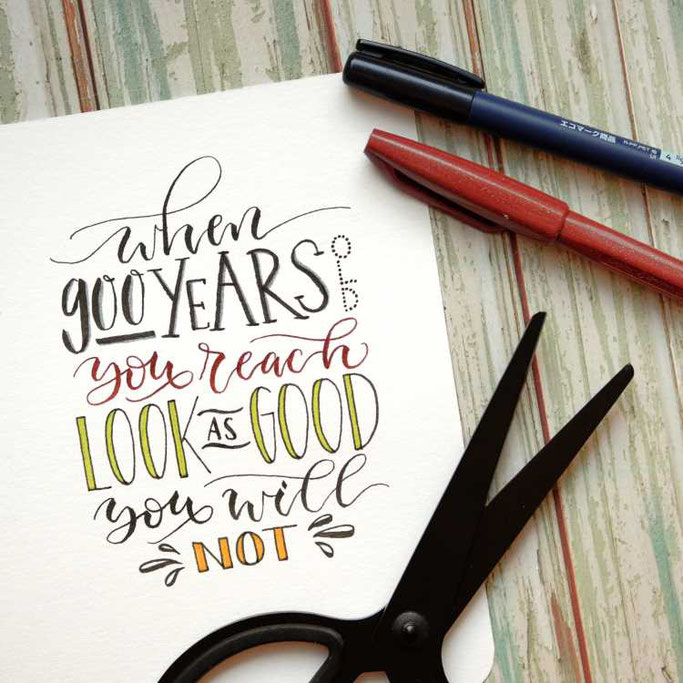 when
900 YEARS OLD
you reach
LOOK AS GOOD
you will
NOT
エコマーク商品